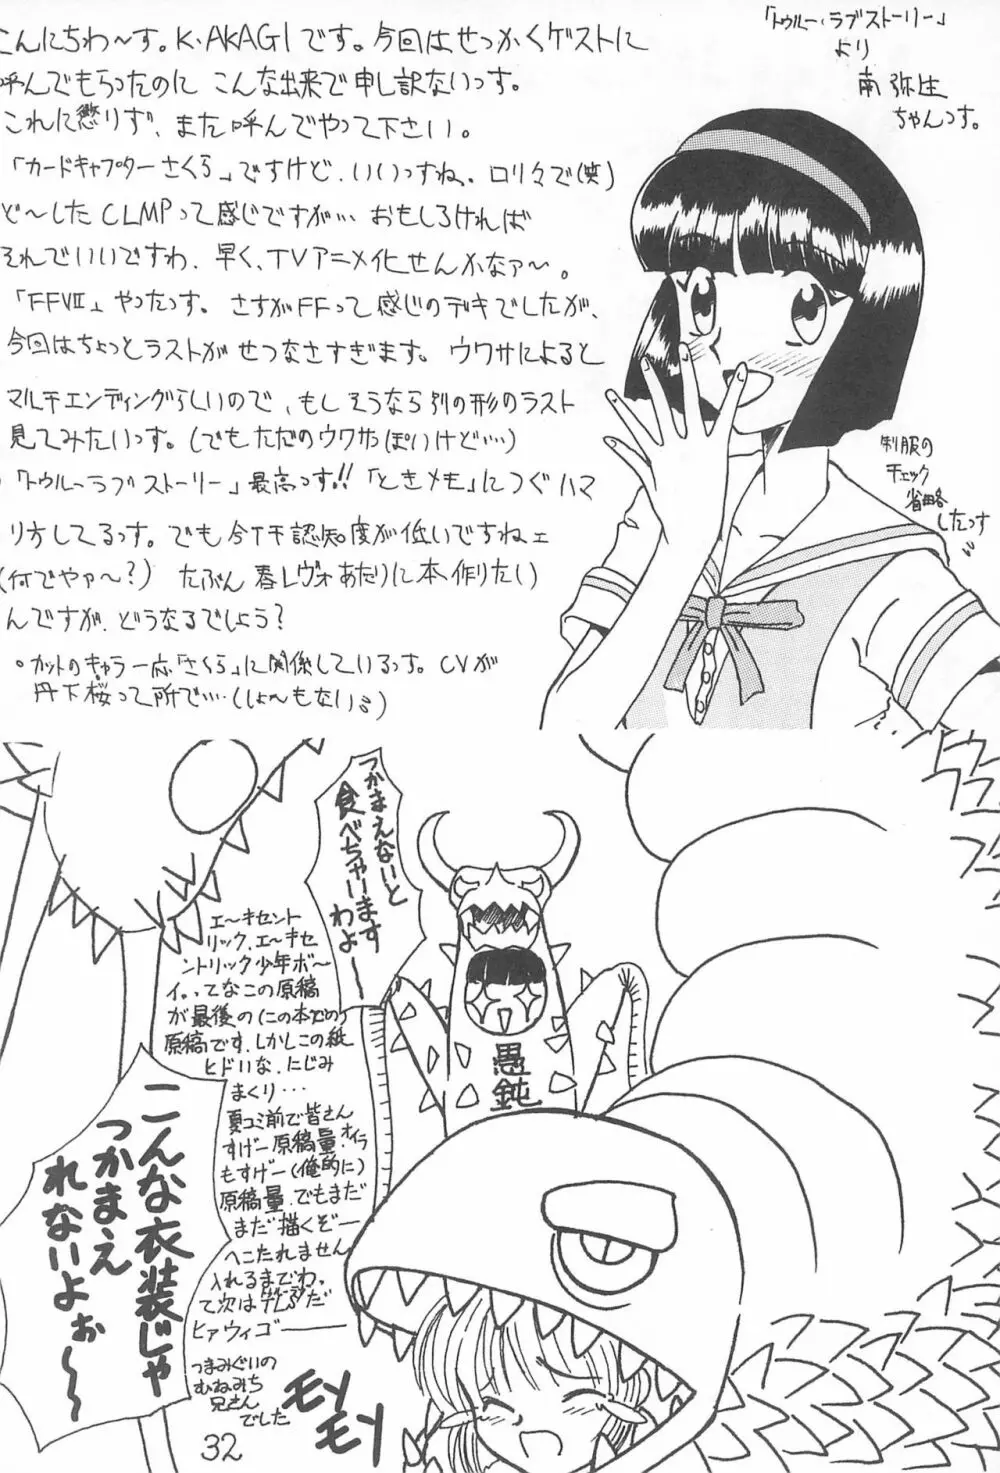 こんにちわ～す。K・AKAGIです。今回はせっかくゲストに
呼んでもらったのに こんな出来で申し訳ないっす。
これに懲りず、また呼んでやって下さい。
「カードキャプターさくら」ですけど、いいっすね、ロリ々で(笑)
ど～したCLMPって感じですが… おもしろければ
それでいいですわ、早く、TVアニメ化せんかなァ～。
「FFⅦ」やったっす。さすがFFって感じのデキでしたが、
今回はちょっとラストがせつなさすぎます。ウワサによると
マルチエンディングらしいので、もしそうなら別の形のラスト
見てみたいっす。(でもただのウワサっぽいけど…)
「トゥルーラブストーリー」最高っす!!「ときメモ」につぐハマ
リ方してるっす。でも今イチ認知度が低いですねェ
(何でやァ～?) たぶん春レヴォあたりに本作りたい
んですが、どうなるでしょう?
○カットのキャラ一応「さくら」に関係しているっす。CVが
丹下桜って所で…(しょ～もない)
「トゥルー・ラブストーリー」
より
南 弥生
ちゃんっす。
制服の
チェック
省略
したっす
つかまえないと
食べちゃいます
わよ～
愚鈍
エ～キセント
リック、エ～キセ
ントリック少年ボ～
イ。ってなこの原稿
が最後の(この本での)
原稿です、しかしこの紙
ヒドいな、にじみ
まくり…
夏コミ前で皆さん
すげー原稿量、オイラ
もすげー(俺的に)
原稿量、でもまだ
まだ描くぞー
へこたれません
入れるまでわ。
て次はデレぷだ
ヒアウィゴー
つまみぐいの
むねみち
兄さん
でした
こんな衣装じゃ
つかまえ
れないよぉ～
モソ
モソ
32